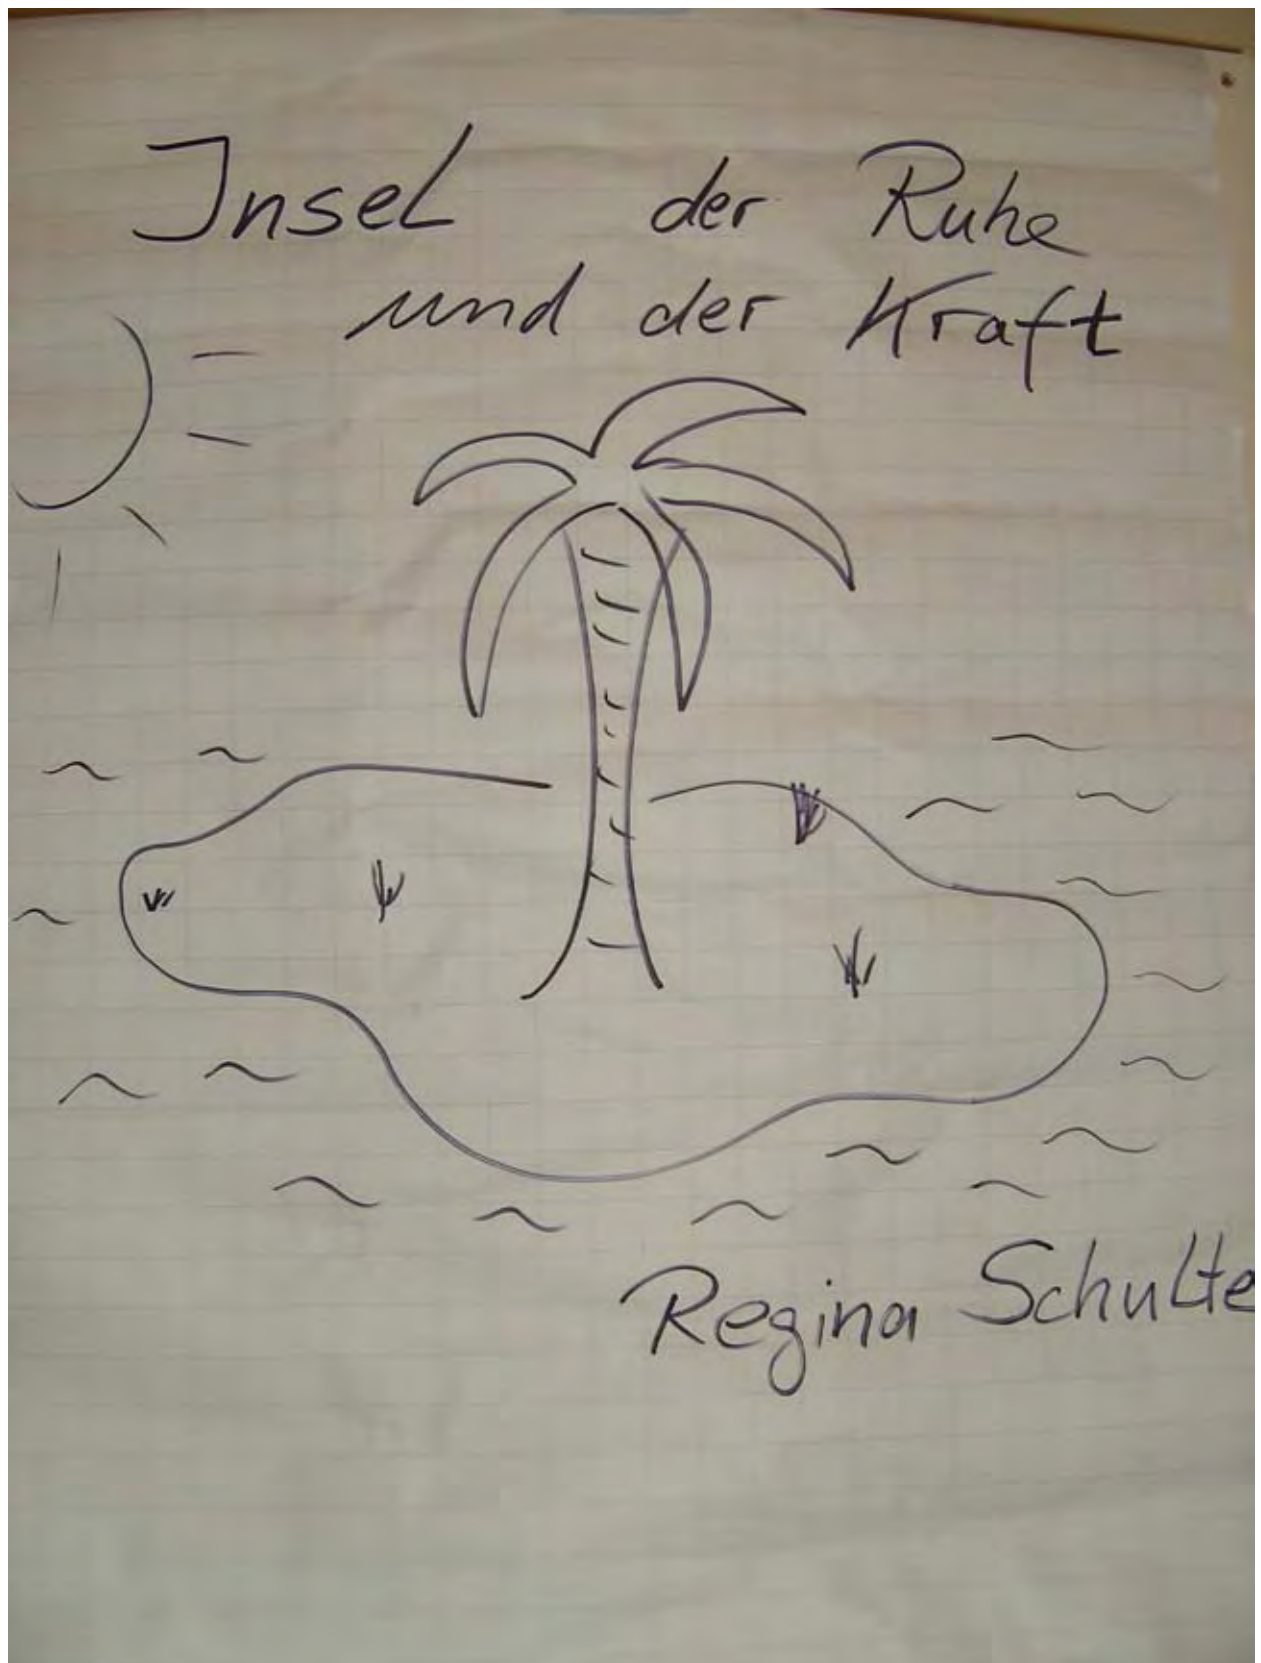 Insel der Ruhe
und der Kraft
Regina Schulte